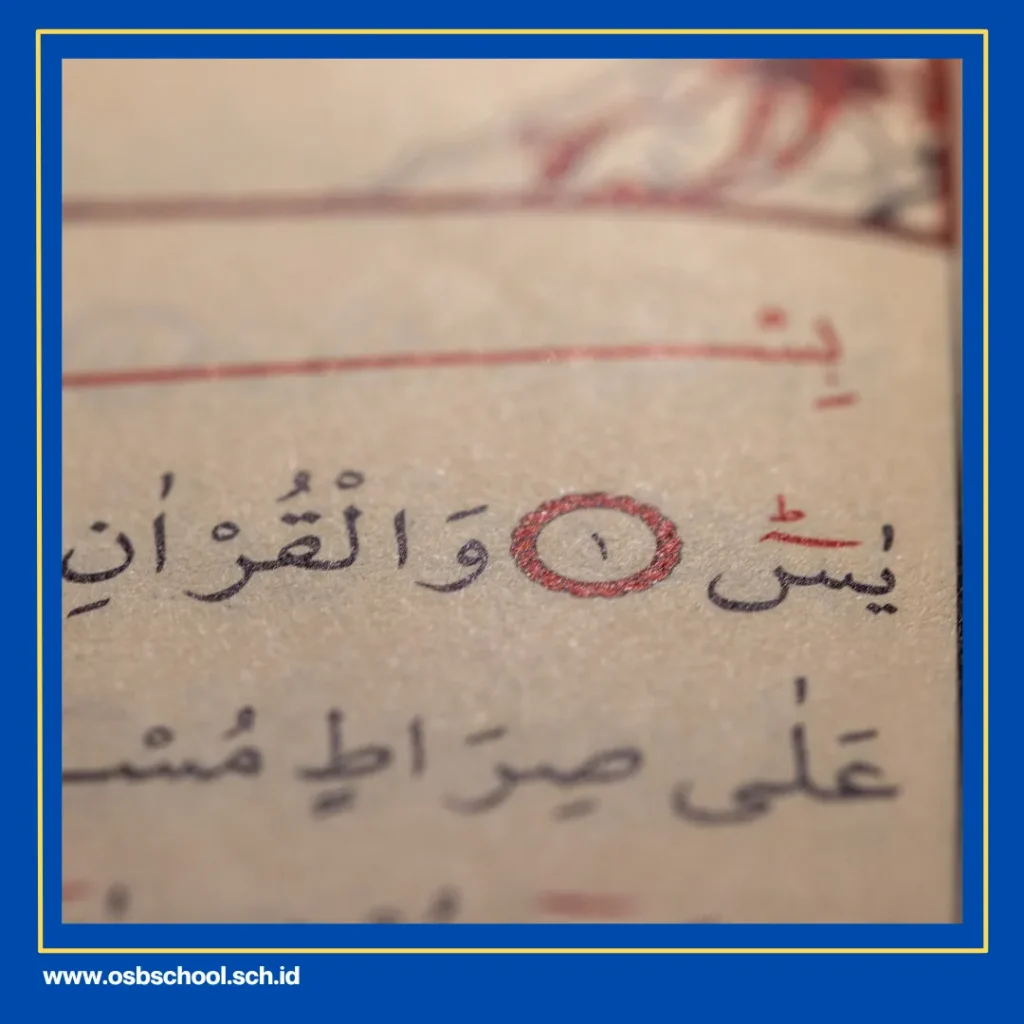 يٰسٓ ۚ ١ وَالْقُرْاٰنِ
عَلٰى صِرَاطٍ مُسْـ
www.osbschool.sch.id